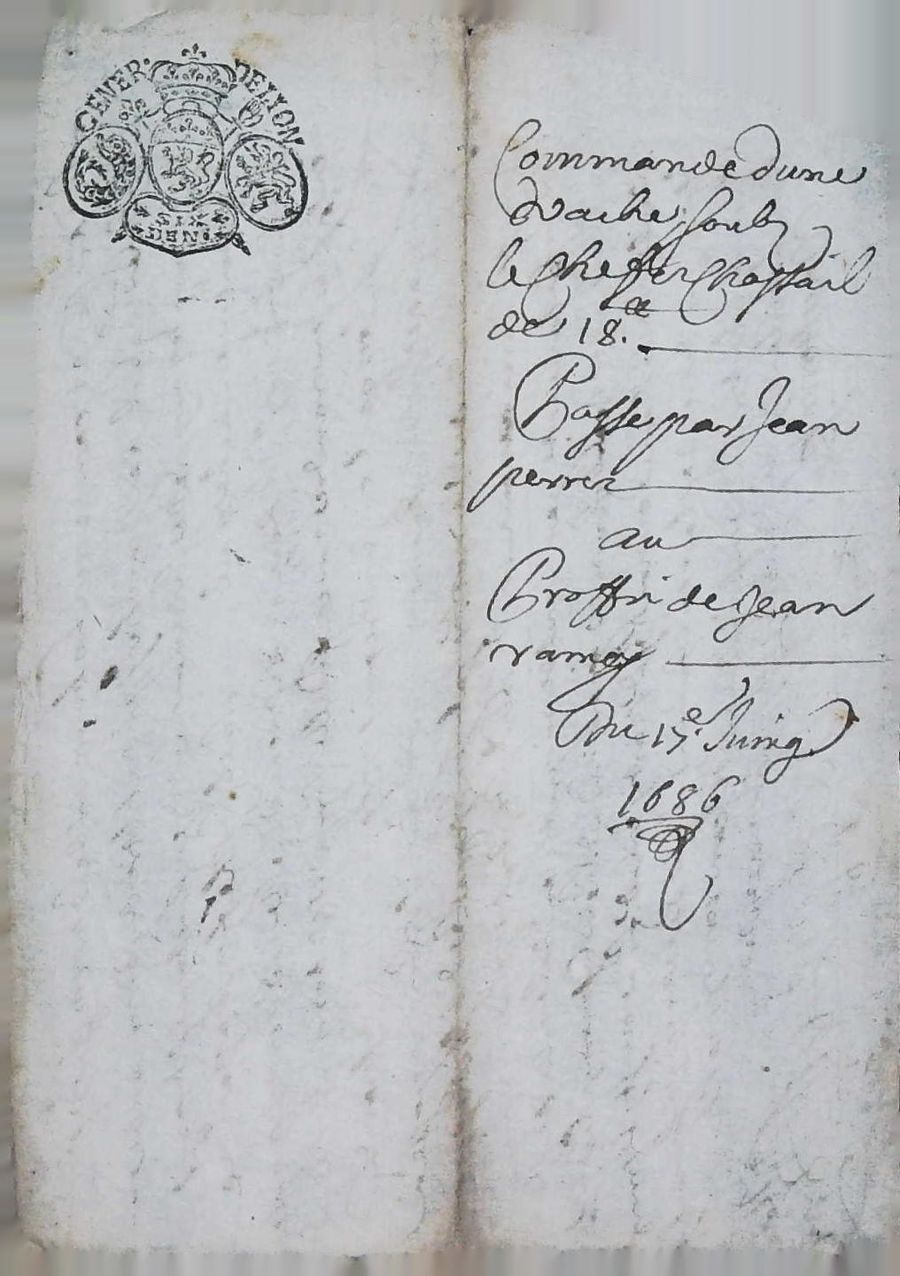 GENER. DE LYON
SIX
DEN.
Commande dune
vache soubz
le Cheffer Chaptail
de 18.ll
Passe par Jean
perrer
au
Proffri de Jean
ramey
Du 17e Juing
1686